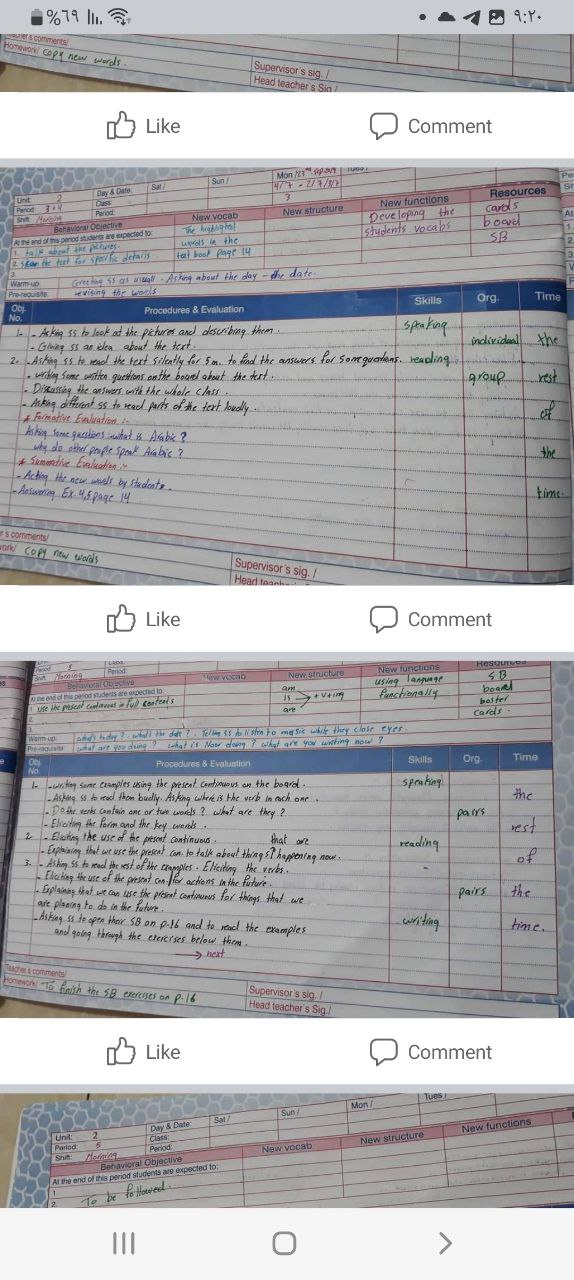 %٦٩
٩:٢٠
Teacher's comments/
Homework/ copy new words.
Supervisor's sig. /
Head teacher's Sig /
Like
Comment
Unit: 2
Day & Date:
Sat/
Sun/
Mon /23
Tues/
Period: 3+4
Class:
4/7 - 2/7/3/7
Shift: Morning
Period:
3
Behavioral Objective
New vocab
New structure
New functions
Resources
At the end of this period students are expected to:
1. talk about the pictures.
2. Scan the text for specific details
3.
The highlighted
words in the
text book page 14
Developing the
students vocabs
cards
board
SB
Warm-up: Greeting SS as usuall - Asking about the day - the date.
Pre-requisite: revising the words
Obj. No.
Procedures & Evaluation
Skills
Org.
Time
1- - Asking ss to look at the pictures and describing them.
speaking
- Giving ss an idea about the text.
individual
the
2- - Asking ss to read the text silently for 5m. to find the answers for some questions.
reading
- writing some written questions on the board about the text.
group
rest
- Discussing the answers with the whole class.
- Asking different ss to read parts of the text loudly.
of
* Formative Evaluation :-
Asking some questions: what is Arabic?
why do other people speak Arabic?
the
* Summative Evaluation :-
- Acting the new words by students.
- Answering Ex. 4,5 page 14
time.
r's comments/
work/ copy new words
Supervisor's sig. /
Head teach
Like
Comment
Period: 5
Class:
Shift: Morning
Period:
Behavioral Objective
New vocab
New structure
New functions
Resources
At the end of this period students are expected to:
1. Use the present continuous in full contents
2.
3.
am
is → +v+ing
are
using language
functionally
SB
board
boster
cards.
Warm-up: what's today? . what's the date? . Telling ss to listen to music while they close eyes.
Pre-requisite: what are you doing? what is Noor doing? what are you writing now?
Obj. No.
Procedures & Evaluation
Skills
Org.
Time
1- - writing some examples using the present continuous on the board.
speaking
- Asking ss to read them loudly. Asking where is the verb in each one.
the
- Do the verbs contain one or two words? what are they?
pairs
- Eliciting the form and the key words.
rest
2- - Eliciting the use of the present continuous.
reading
- Explaining that we use the present con. to talk about things that are happening now.
of
3. - Asking ss to read the rest of the examples. Eliciting the verbs.
- Eliciting the use of the present con. for actions in the future.
- Explaining that we can use the present continuous for things that we
pairs
the
are planing to do in the future.
- Asking ss to open their SB on p.16 and to read the examples
writing
time.
and going through the exercises below them.
→ next
Teacher's comments/
Homework/ To finish the SB exercises on p.16
Supervisor's sig. /
Head teacher's Sig./
Like
Comment
Unit: 2
Day & Date:
Sat /
Sun /
Mon /
Tues /
Period: 5
Class:
Shift: Morning
Period:
Behavioral Objective
New vocab
New structure
New functions
At the end of this period students are expected to:
1.
2. To be followed.